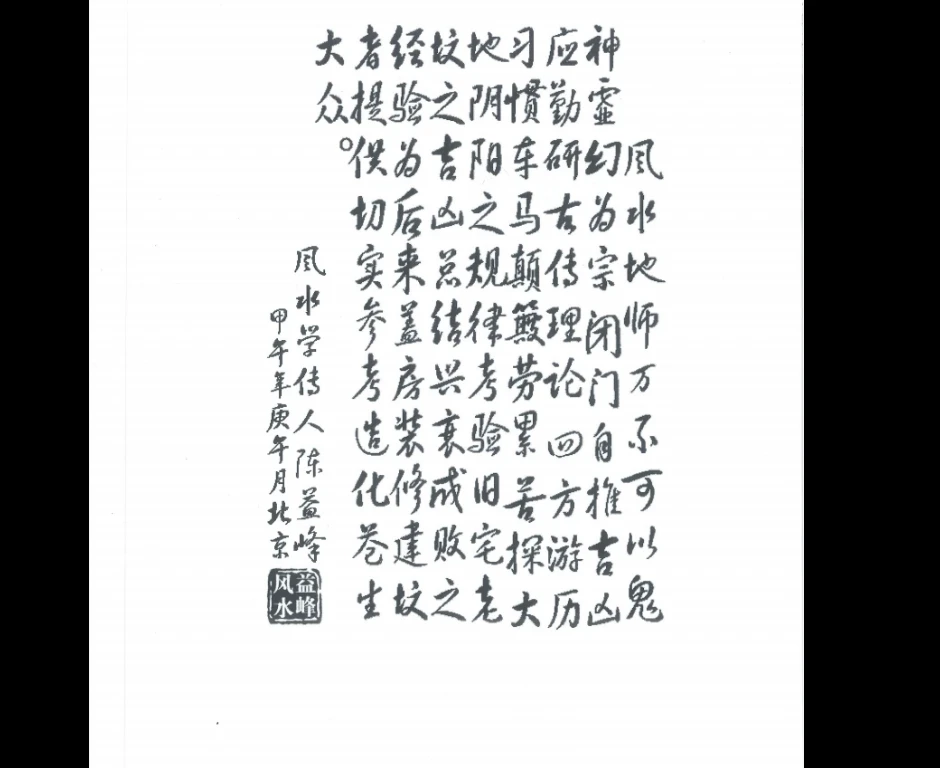 风水地师万不可以鬼
神霊幻为宗闭门自推吉凶
应勤研古传理论四方游历
习惯车马颠簸劳累苦探大
地阴阳之规律考验旧宅老
坟之吉凶总结兴衰成败之
经验为后来盖房装修建坟
者提供切实参考造化苍生
大众。
风水学传人陈益峰
甲午年庚午月北京
益峰
风水